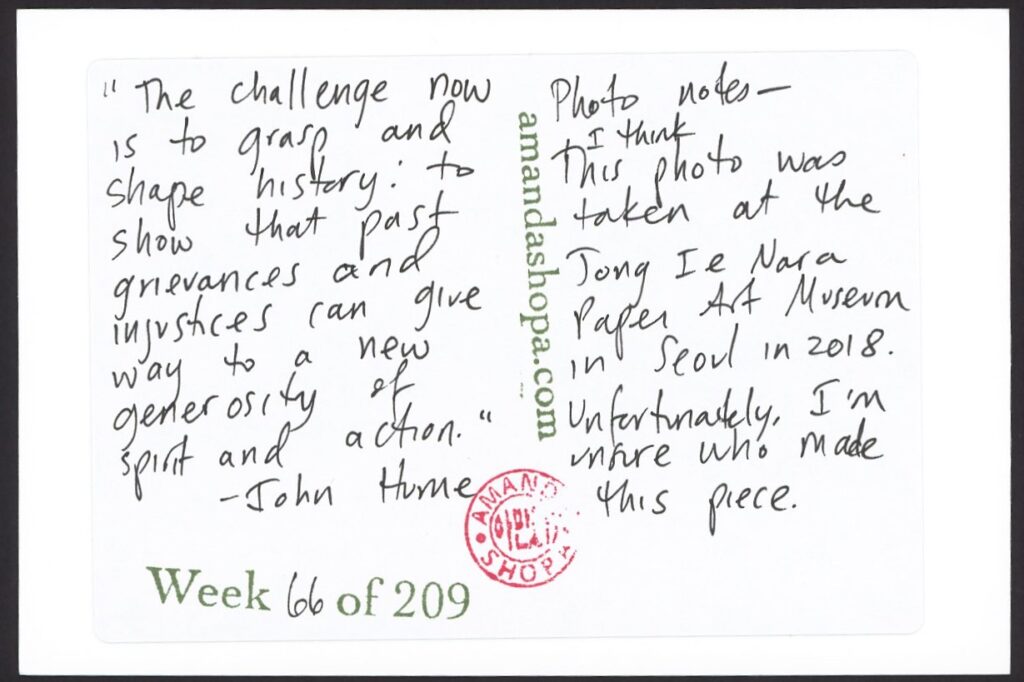 "The challenge now
is to grasp and
shape history: to
show that past
grievances and
injustices can give
way to a new
generosity of
spirit and action."
-John Hume
Photo notes—
I think
This photo was
taken at the
Jong Ie Nara
Paper Art Museum
in Seoul in 2018.
Unfortunately, I'm
unsure who made
this piece.
amandashopa.com
AMAND
SHOPA
Week 66 of 209